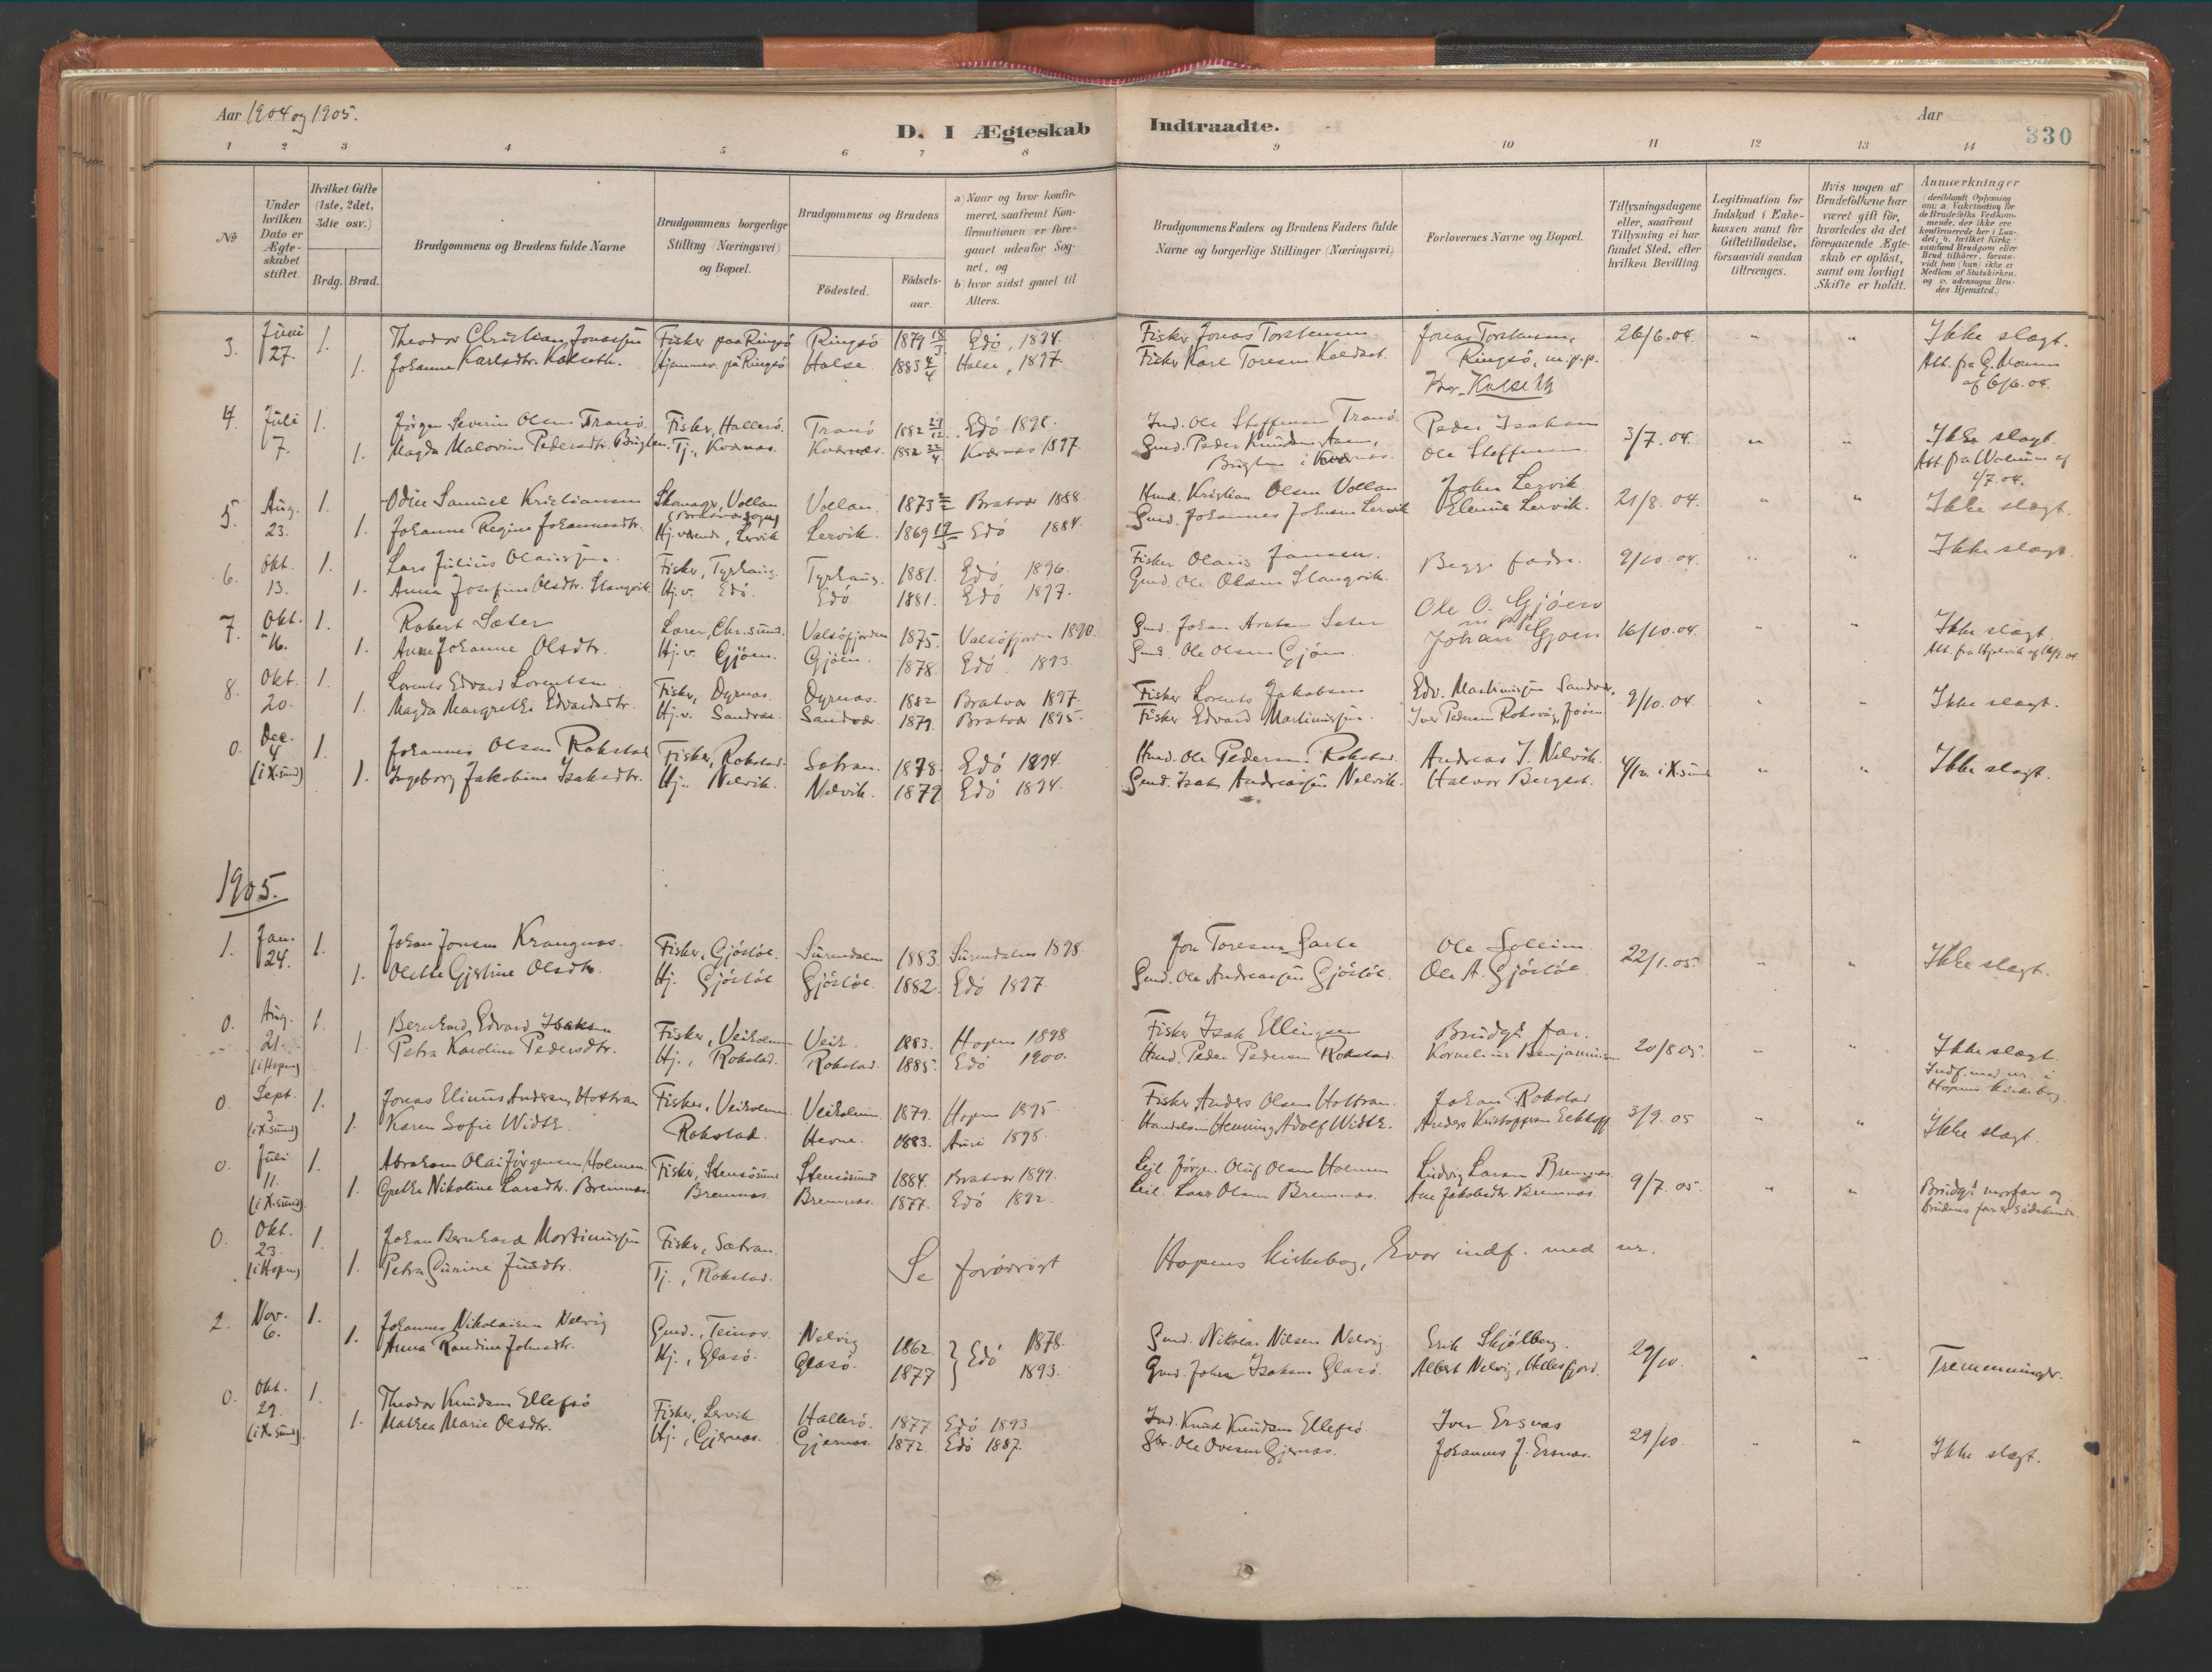 Aar 1904 og 1905.
D. I Ægteskab Indtraadte.
Aar
330
1 2 3 4 5 6 7 8 9 10 11 12 13 14
№
Under hvilken Dato er Ægteskabet stiftet.
Hvilket Gifte (1ste, 2det, 3die osv.)
Brdg. Brud.
Brudgommens og Brudens fulde Navne
Brudgommens borgerlige Stilling (Næringsvei) og Bopæl.
Brudgommens og Brudens
Födested.
Födselsaar.
a) Naar og hvor konfirmeret, saafremt Konfirmationen er foregaaet udenfor Sognet, og
b) hvor sidst gaaet til Alters.
Brudgommens Faders og Brudens Faders fulde Navne og borgerlige Stillinger (Næringsvei)
Forlovernes Navne og Bopæl.
Tillysningsdagene eller, saafremt Tillysning ei har fundet Sted, efter hvilken Bevilling
Legitimation for Indskud i Enkekassen samt for Giftetilladelse, forsaavidt saadan tiltrænges.
Hvis nogen af Brudefolkene har været gift för, hvorledes da det foregaaende Ægteskab er oplöst, samt om lovligt Skifte er holdt.
Anmærkninger (deriblandt Oplysning om: a. Vakcination for de Brudefolks Vedkommende, der ikke ere konfirmerede her i Landet; b. hvilket Kirkesamfund Brudgom eller Brud tilhörer, forsaavidt han (hun) ikke er Medlem af Statskirken, og c. udensogns Brudes Hjemsted.)
3. Juni 27. 1. Theodor Christian Jonassen Fisker paa Ringsö Ringsö 1879 18/3 Edö, 1894. Fisker Jonas Torstensen Jonas Torstensen, 26/6.04. " " Ikke slægt.
1. Johanne Karlsdtr. Kalseth. Hjemmev. på Ringsö Halse 1883 4/4 Halse, 1897. Fisker Karl Toresen Ringsö, m.p.p. Att. fra
Kalseth af 6/6.04.
4. Juli 7. 1. Jörgen Severin Olsen Tranö. Fisker, Hallerö. Tranö 1882 29/12 Edö 1898. Ind. Ole Steffensen Tranö Peder Isaksen 3/7.04. " " Ikke slægt.
1. Magda Malovine Pedersdtr. Tj., Kvernæs. Kvernæs. 1882 22/4 Kvernæs 1897. Gmd. Peder Knudsen Ole Steffensen Att. fra af
i Kvernæs. 1/7.04.
5. Aug. 23. 1. Odin Samuel Kristiansen Skomager, Vollan Vollan 1873 Bratvær 1888 Kristian Olsen Vollan John Lervik 21/8.04. " " Ikke slægt.
(Bratvær sogn)
1. Johanne Regine Johannesdtr. Hj.værende, Lervik Lervik. 1869 Edö 1884. Gmd. Johannes Johnsen Lervik Elenius Lervik.
6. Okt. 13. 1. Lars Julius Olaussen. Fisker, Tyrhaug. Tyrhaug. 1881. Edö 1896. Fisker Olaus Jansen. Begge fædre. 9/10.04. " " Ikke slægt.
1. Anna Josefine Olsdtr. Stangvik. Hj.v. Edö. Edö. 1881. Edö 1897. Gmd. Ole Olsen Stangvik.
7. Okt. 16. 1. Robert Sæter Lærer, Chr.sund. Valsöfjorden 1875. Valsöfjorden 1890. Gmd. Johan Sæter Ole O. Gjöen 16/10.04. " " Ikke slægt.
m p p
1. Anne Johanne Olsdtr. Hj.v. Gjöen. Gjöen. 1878. Edö 1893. Gmd. Ole Olsen Gjöen Johan Gjöen Att. fra
8. Okt. 20. 1. Lorents Edvard Lorentsen Fisker, Dyrnæs. Dyrnæs. 1882 Bratvær 1897. Fisker Lorents Jakobsen Edv. Martinussen Sandvær, 9/10.04. " " Ikke slægt.
1. Magda Margrethe Edvardsdtr. Hj.v. Sandvær. Sandvær. 1879. Bratvær 1895. Fisker Edvard Martinussen. Iver Pedersen
0. Dec. 4 (i X.sund) 1. Johannes Olsen Rokstad Fisker, Rokstad. Sætran. 1878. Edö 1894. Ole Pedersen Rokstad. Andreas I. Nelvik. 4/12 i X.sund " " Ikke slægt.
1. Ingeborg Jakobine Isaksdtr. Hj. Nelvik. Nelvik. 1879. Edö 1894. Gmd. Isak Andreassen Nelvik. Halvor
1905.
1. Jan. 24. 1. Johan Jonsen Krangnæs. Fisker, Gjöstöl. Surendalen 1883. Surendalen 1898 Jon Toresen Ole Solheim 22/1.05. " " Ikke slægt.
1. Olette Gjertine Olsdtr. Hj. Gjöstöl Gjöstöl. 1882. Edö 1897. Gmd. Ole Andreassen Gjöstöl. Ole A. Gjöstöl
0. Aug. 21. (i Hopen) 1. Bernhard Edvard Isaksen Fisker, Veiholmen Veih. 1883. Hopen 1898 Fisker Isak Ellingsen Brudgs far. 20/8 05. " " Ikke slægt.
1. Petra Karoline Pedersdtr. Hj., Rokstad. Rokstad. 1885. Edö 1900. Peder Pedersen Rokstad. Kornelius Benjaminsen Indf. med nr. i
Hopens kirkebog
0. Sept. 3. (i X.sund) 1. Jonas Elinus Andersen Hottran Fisker, Veiholmen. Veiholmen. 1879. Hopen 1895. Fisker Anders Olsen Hottran. Johan Rokstad 3/9.05 " " Ikke slægt.
1. Karen Sofie Width. Rokstad. Hevne. 1883. Aure 1898. Handelsm. Henning Adolf Width. Anders Kristoffersen
0. Juli 11. (i X.sund) 1. Abraham Olai Jörgensen Holmen. Fisker, Stensösund Stensösund 1884. Bratvær 1899. Leil. Jörgen Oluf Olsen Holmen Ludvig Larsen Bremnæs. 9/7.05. " " Brudgs morfar og
1. Grethe Nikoline Larsdtr. Bremnæs. Bremnæs. Bremnæs. 1877. Edö 1892. Leil. Lars Olsen Bremnæs. Ane Jakobsdtr. Bremnæs. Brudens far er södskende.
0. Okt. 23. (i Hopen) 1. Johan Bernhard Martinussen Fisker, Sætran.
1. Petra Gurine Tj., Rokstad. Se forövrigt Hopens kirkebog, hvor indf. med nr.
2. Nov. 6. 1. Johannes Nikolaisen Nelvig Gmd., Teinæs. Nelvig 1862. Edö 1878. Gmd. Nikolai Nilsen Nelvig. Erik Skjölberg. 29/10. " " Tremenninger.
1. Anna Randine Johnsdtr. Hj., Glasö. Glasö. 1877 1893. Gmd. John Isaksen Glasö. Albert Nelvig,
0. Okt. 29. (i X.sund). 1. Theodor Knudsen Ellefsö Fisker, Lervik Hallerö. 1877 Edö 1893. Ind. Knud Knudsen Ellefsö. Iver Ersnæs 29/10. " " Ikke slægt.
1. Mathea Marie Olsdtr. Hj., Gjernæs. Gjernæs. 1872 Edö 1887. Gbr. Ole Ovesen Gjernæs. Johannes J. Ersnæs.